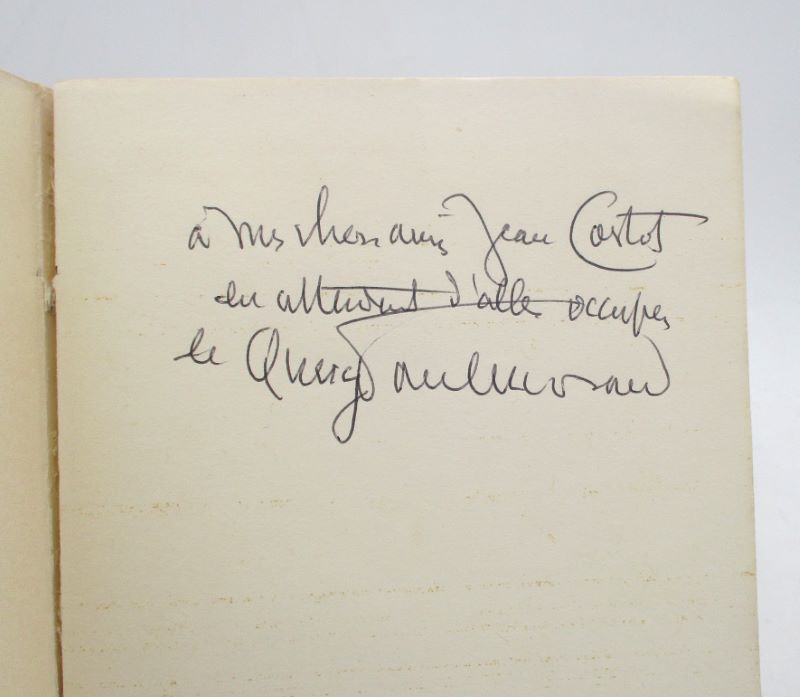 à mes chers amis Jean Castot
en attendant d'aller occuper
le Quercy Paul Morand